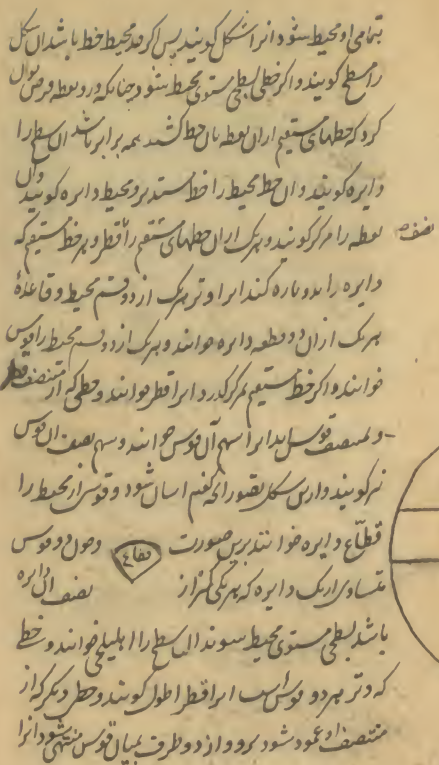 بتمامی او محیط شود انرا شکل کویند پس اکر محیط خط باشد ان شکل
را سطح کویند و اکر خطی بسطحی مستوی محیط شود چنانکه در و نقطه فرض توان
کرد که خطهای مستقیم از ان نقطه بان خط کشند همه برابر باشد ان سطح را
دایره کویند و ان خط محیط را خط مستدیر و محیط دایره کویند و ان
نقطه را مرکز کویند و هریک از ان خطهای مستقیم را نصف قطر و هر خط مستقیم که
دایره را بدو پاره کند انرا وتر هریک از دو قسم محیط و قاعدهٔ
هریک از ان دو قطعه دایره خوانند و هریک از دو قسم محیط را قوس
خوانند و اکر خط مستقیم بمرکز کذرد انرا قطر خوانند و خطی که از منتصف وتر
و بمنتصف قوس اید انرا سهم آن قوس خوانند و سهم نصف ان قوس
نیز کویند و ازین شکل تصور انچه کفتم اسان شود و قوسی از محیط را
قطّاع دایره خوانند برین صورت قطاع و چون دو قوس
متساوی از یک دایره که هر یکی کمتر از نصف ان دایره
باشد بسطحی مستوی محیط شوند ان سطح را اهلیلجی خوانند و خطی
که وتر هر دو قوس است انرا قطر اطول کویند و خطی دیکر که از
منتصف او عمود شود برو و از دو طرف بمیان قوس منتهی شود انرا